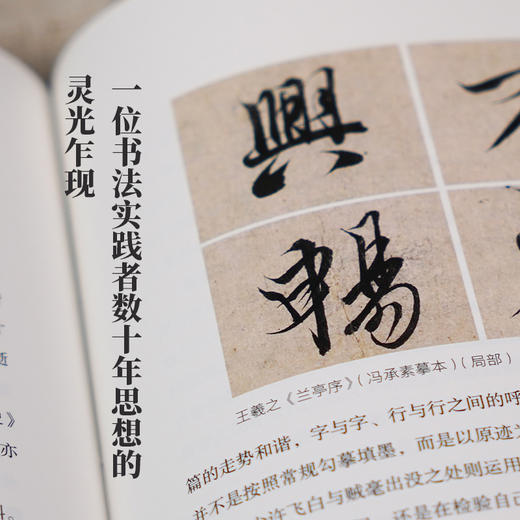 一位书法实践者数十年思想的
灵光乍现
興
暢
王羲之《兰亭序》(冯承素摹本)(局部)
篇的走势和谐，字与字、行与行之间的呼
并不是按照常规勾摹填墨，而是以原迹为
许飞白与贼毫出没之处则运用
还是在检验自己
》
亦